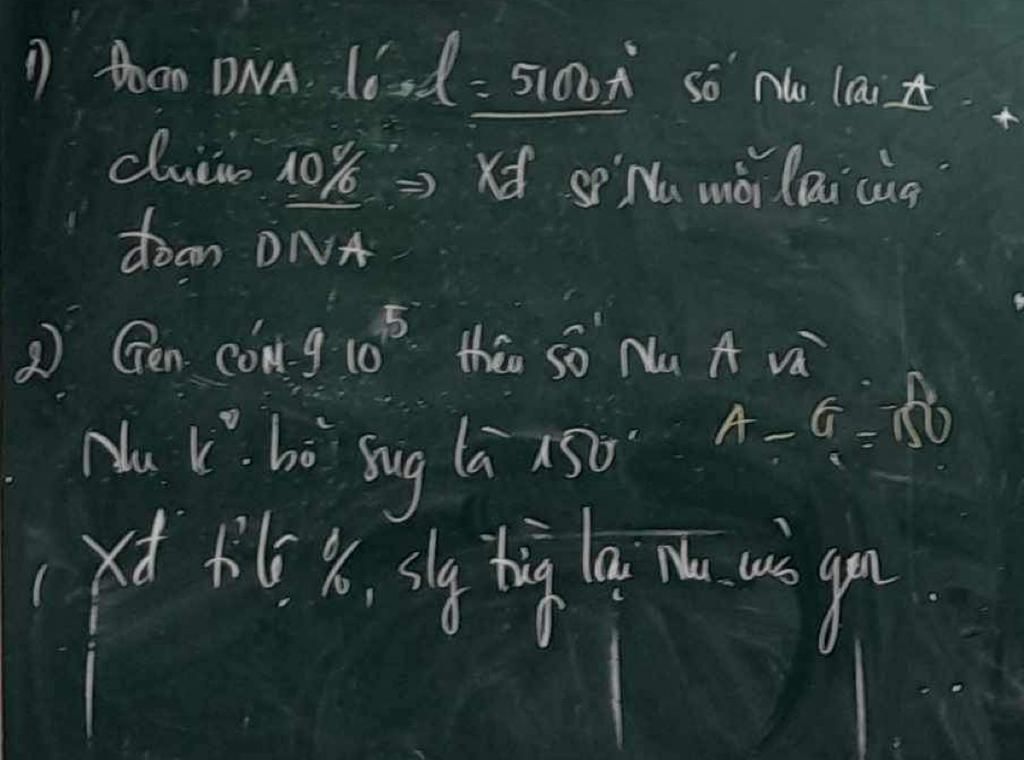 1) Đoạn DNA có l = 5100Å số Nu loại A
chiếm 10% => Xđ số Nu mỗi loại của
đoạn DNA
2) Gen có M = 9.10⁵ hiệu số Nu A và
Nu k° bổ sug là 150 A - G = 150
Xđ tỉ lệ %, slg từg loại Nu của gen.